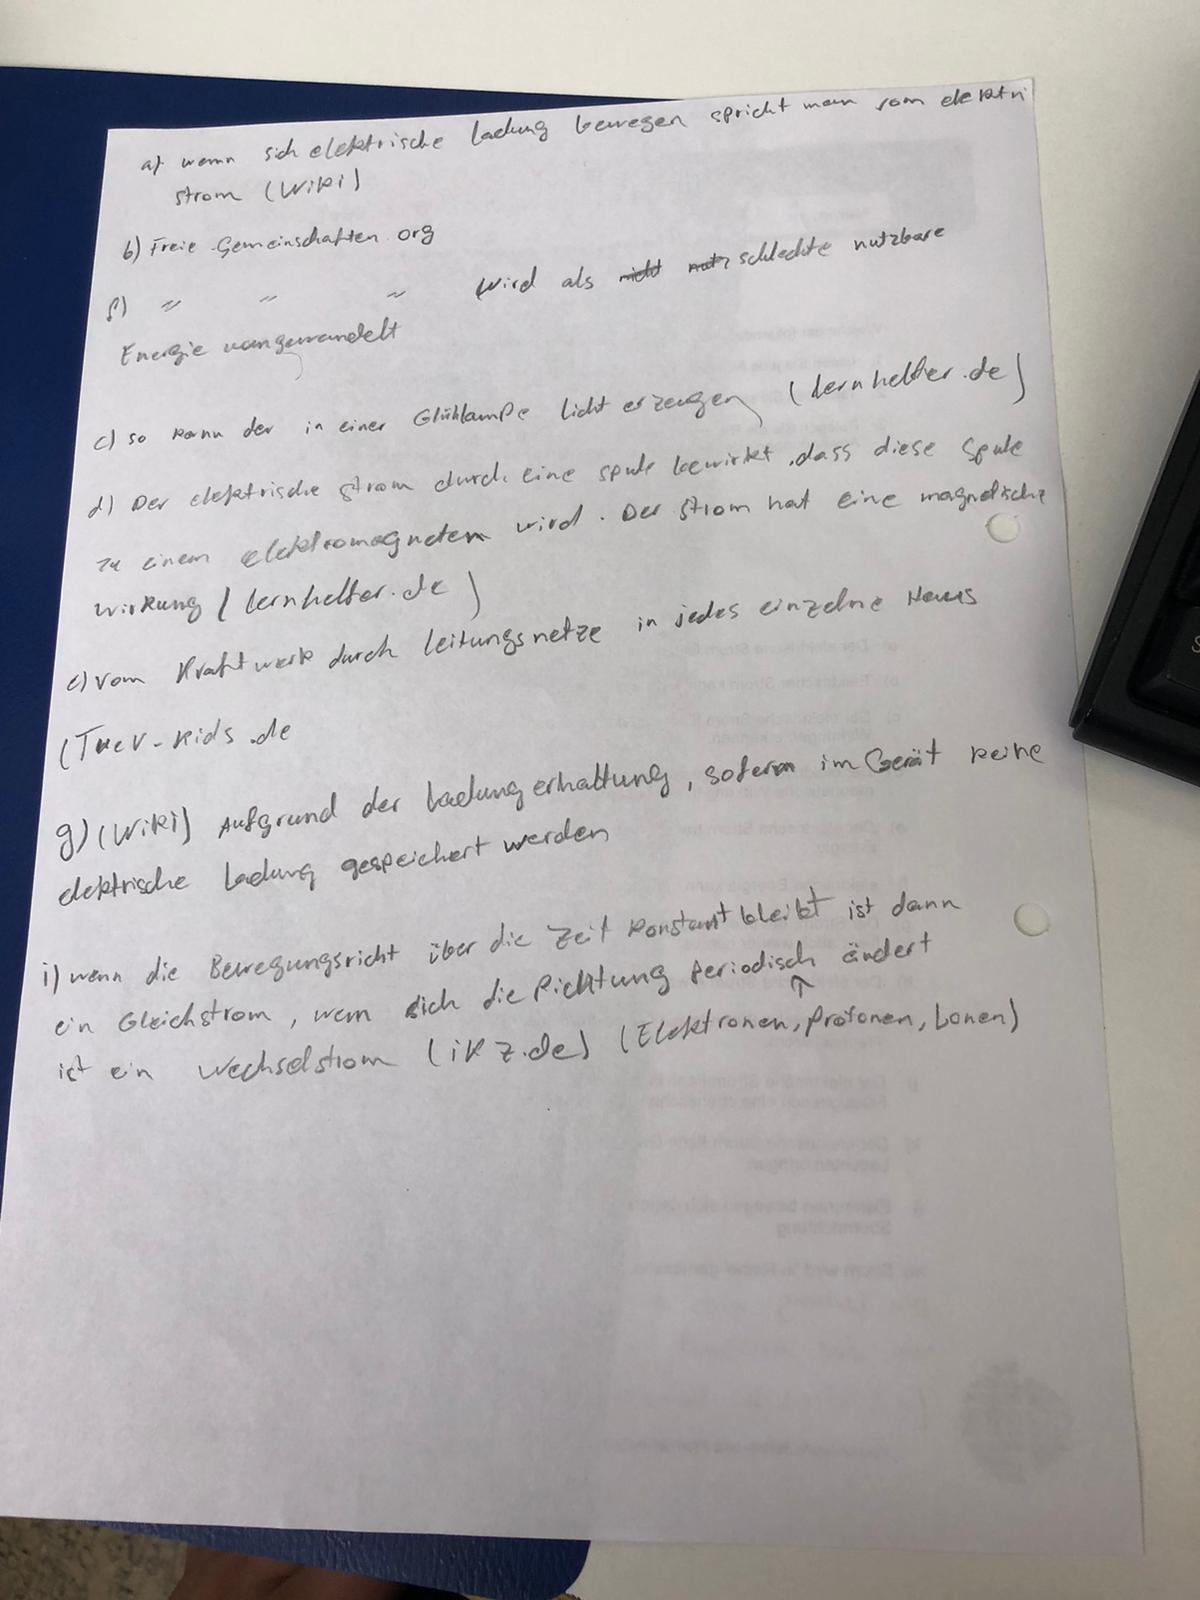 a) wenn sich elektrische Ladung bewegen spricht man vom elektri
strom (Wiki)
b) Freie-Gemeinschaften.org
f) " " " Wird als nicht nutz schlechte nutzbare
Energie umgewandelt
c) so kann der in einer Glühlampe licht erzeugen (lernhelfer.de)
d) Der elektrische Strom durch eine spule bewirkt, dass diese Spule
zu einem elektromagneten wird. Der Strom hat eine magnetische
wirkung (lernhelfer.de)
e) vom Kraftwerk durch Leitungsnetze in jedes einzelne Haus
(TueV-Kids.de
g) (Wiki) Aufgrund der Ladungerhaltung, sofern im Gerät keine
elektrische Ladung gespeichert werden
i) wenn die Bewegungsricht über die Zeit Konstant bleibt ist dann
ein Gleichstrom, wenn sich die Richtung periodisch ändert
ist ein Wechselstrom (ikz.de) (Elektronen, Protonen, Ionen)